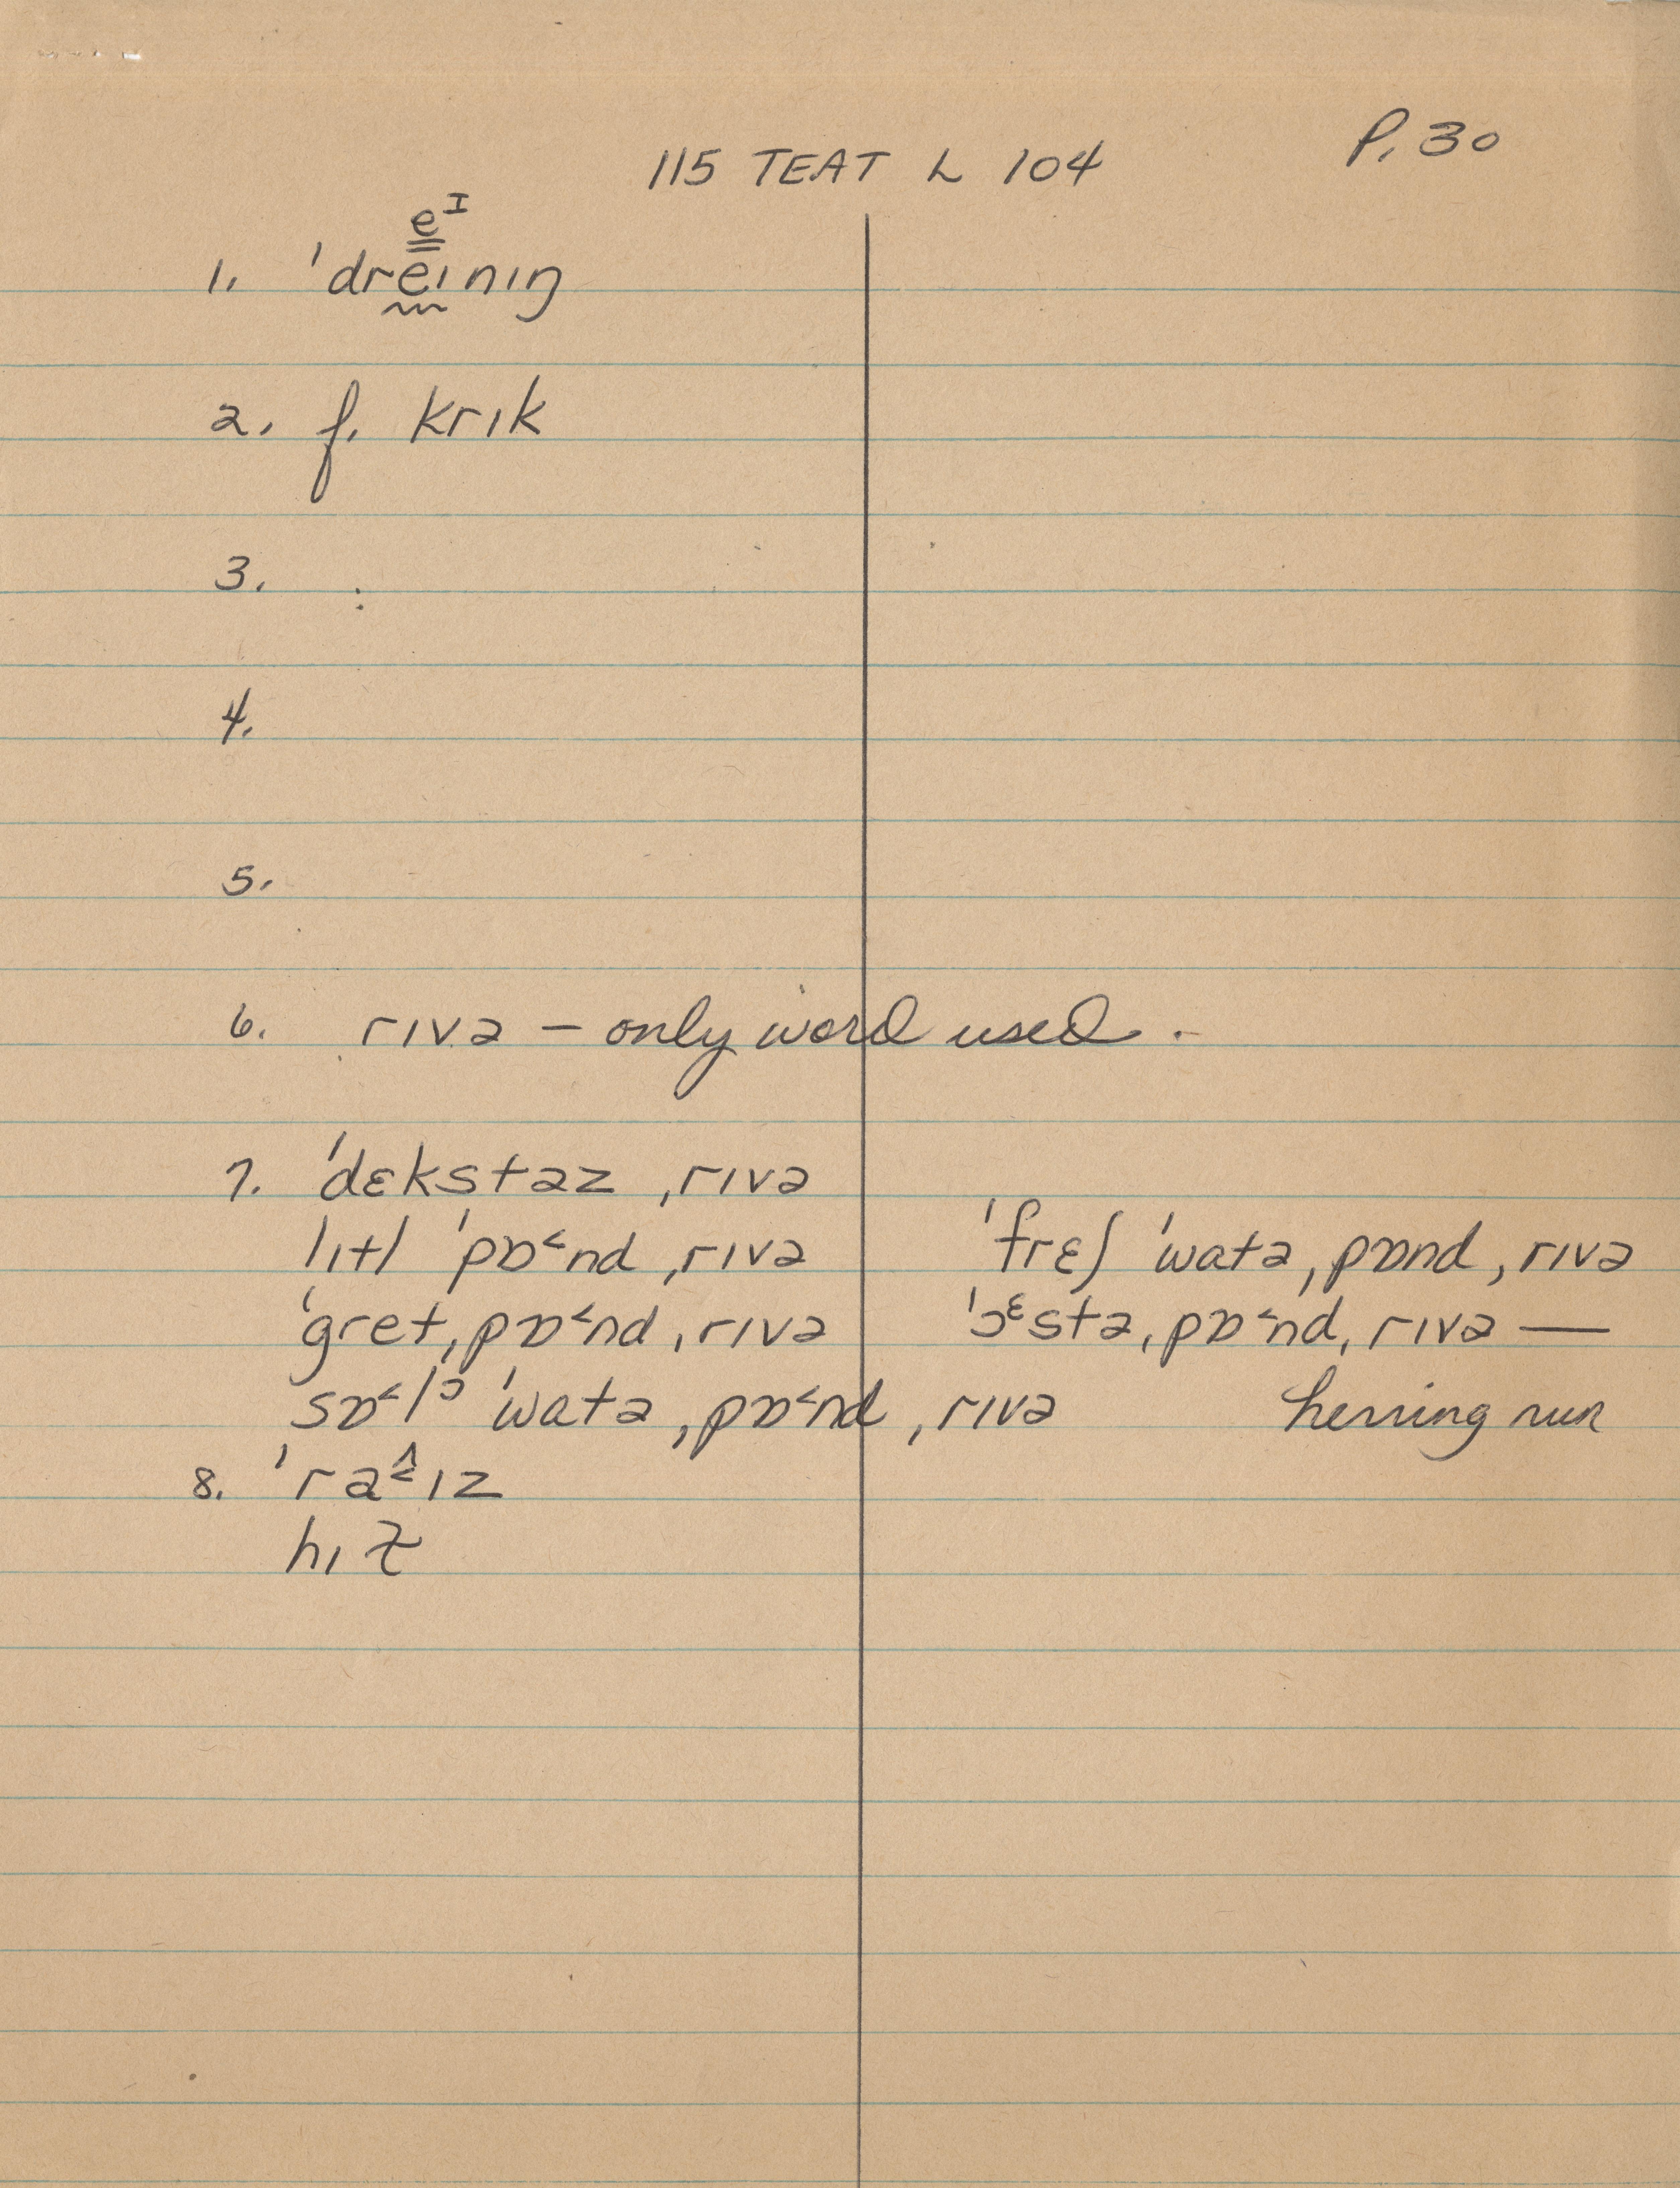 P. 30
115 TEAT L 104
eᴵ
1. ˈdreɪnɪŋ
2. f. krɪk
3. :
4.
5.
6. rɪvə – only word used.
7. ˈdɛkstəz ˌrɪvə
lɪtl ˈpɒ˂nd ˌrɪvə ˈfrɛʃ ˈwatə ˌpɒnd ˌrɪvə
ˈgret ˌpɒ˂nd ˌrɪvə ˈɔᵋstə ˌpɒ˂nd ˌrɪvə —
sɒ˂lᵓ ˈwatə ˌpɒ˂nd ˌrɪvə herring run
8. ˈra˂ɪz
hɪ